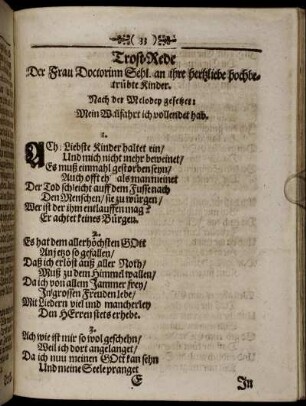 ( 33 )
Trost-Rede
Der Frau Doctorinn Sehl. an ihre hertzliebe hochbe-
trübte Kinder.
Nach der Melodey gesetzet:
Mein Wallfahrt ich vollendet hab.
1.
ACh! Liebste Kinder haltet ein/
Und mich nicht mehr beweinet/
Es muß einmahl gestorben seyn/
Auch offt eh' als man meinet
Der Tod schleicht auff dem Fusse nach
Den Menschen/ sie zu würgen/
Wer ist der ihm entlauffen mag?
Er achtet keines Bürgen.
2.
Es hat dem allerhöchsten GOtt
Anjetzo so gefallen/
Daß ich erlöst auß aller Noth/
Muß zu dem Himmel wallen/
Da ich von allem Jammer frey/
In grossen Freuden lebe/
Mit Liedern viel und mancherley
Den HErren stets erhebe.
3.
Ach wie ist mir so wol geschehn/
Weil ich dort angelanget/
Da ich nun meinen GOtt kan sehn
Und meine Seele pranget
E
In